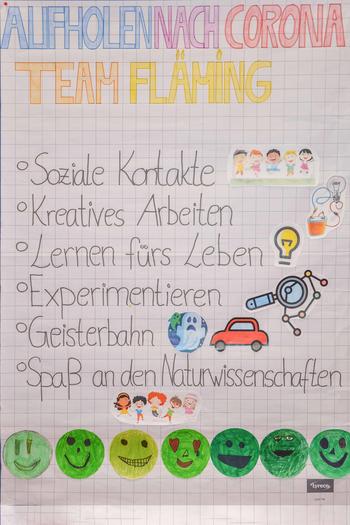 AUFHOLEN NACH CORONA
TEAM FLÄMING
Soziale Kontakte
Kreatives Arbeiten
Lernen fürs Leben
Experimentieren
Geisterbahn
Spaß an den Naturwissenschaften